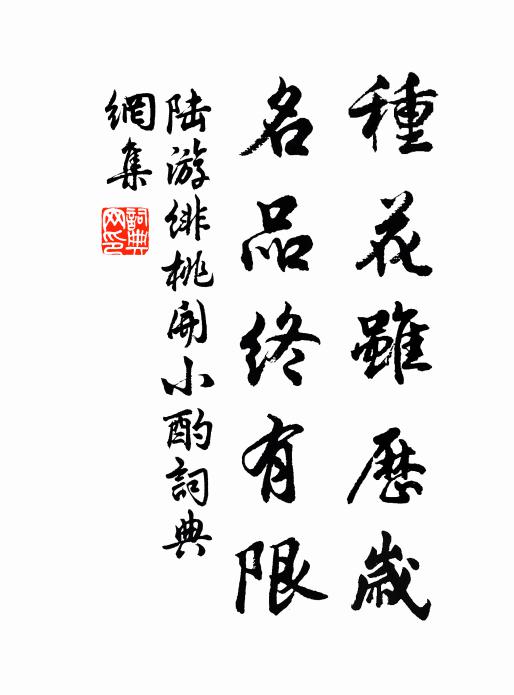 種花雖歷歲
名品終有限
陸游緋桃開小酌詞典
網集
詞典
网印